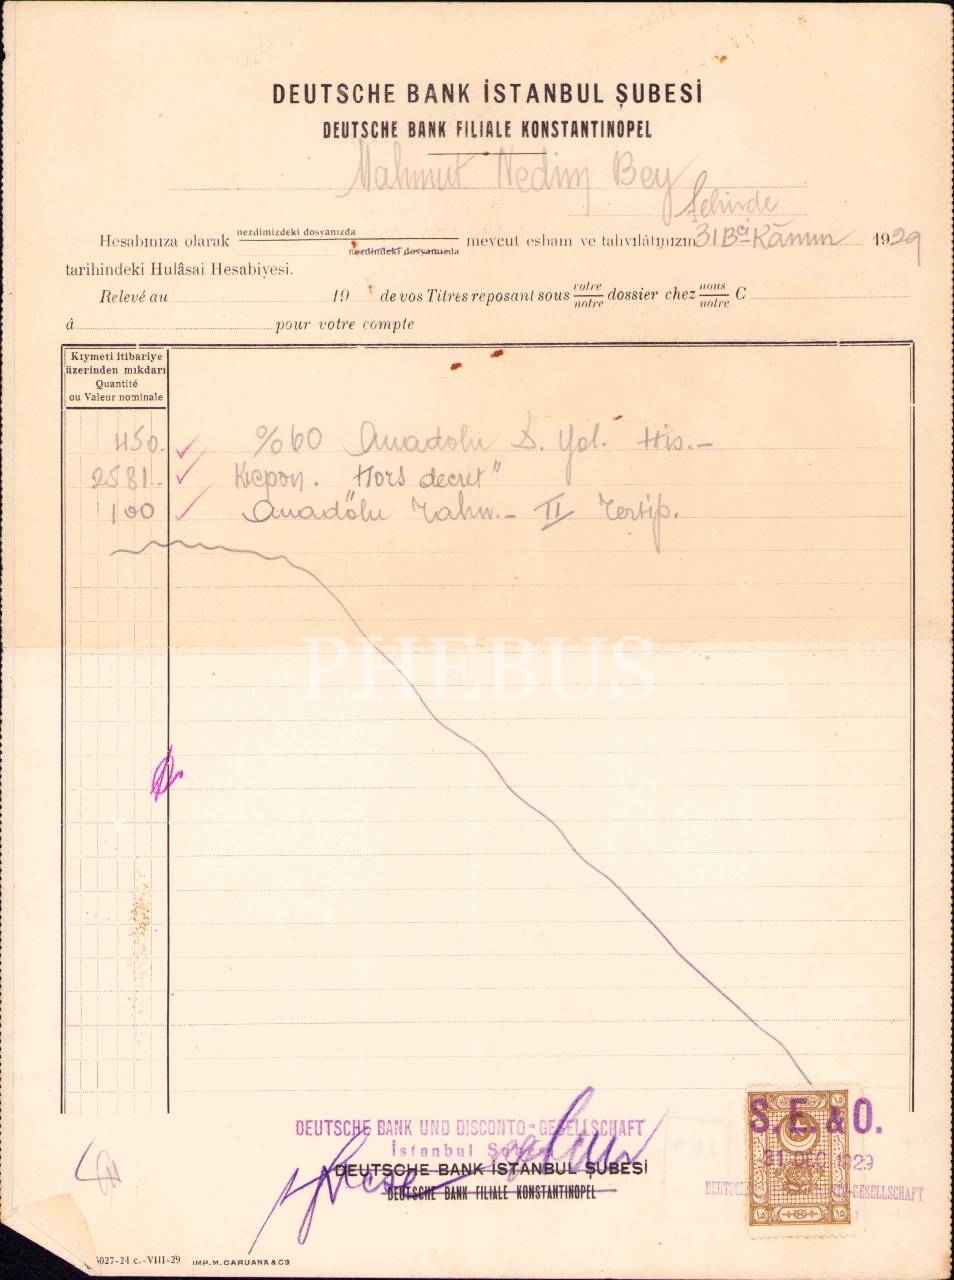 DEUTSCHE BANK İSTANBUL ŞUBESİ
DEUTSCHE BANK FILIALE KONSTANTINOPEL
Mahmut Nedim Bey
Şehirde
Hesabınıza olarak nezdimizdeki dosyanızda nezdindeki dosyamızda mevcut esham ve tahvilâtınızın 31 Bci Kânun 1929
tarihindeki Hulâsai Hesabiyesi.
Relevé au 19 de vos Titres reposant sous votre notre dossier chez nous notre C
à pour votre compte
Kıymeti itibariye
üzerinden mıkdarı
Quantité
ou Valeur nominale
450.- %60 Anadolu D. Yol. His.-
2581.- Kupon. Hors decret"
100 Anadolu Tahv.- II Tertip.
PHEBUS
DEUTSCHE BANK UND DISCONTO-GESELLSCHAFT
İstanbul Şubesi
DEUTSCHE BANK İSTANBUL ŞUBESİ
DEUTSCHE BANK FILIALE KONSTANTINOPEL
S. E. & O.
31 DEC. 1929
5027-24 c.-VIII-29 IMP. M. CARUANA & CO